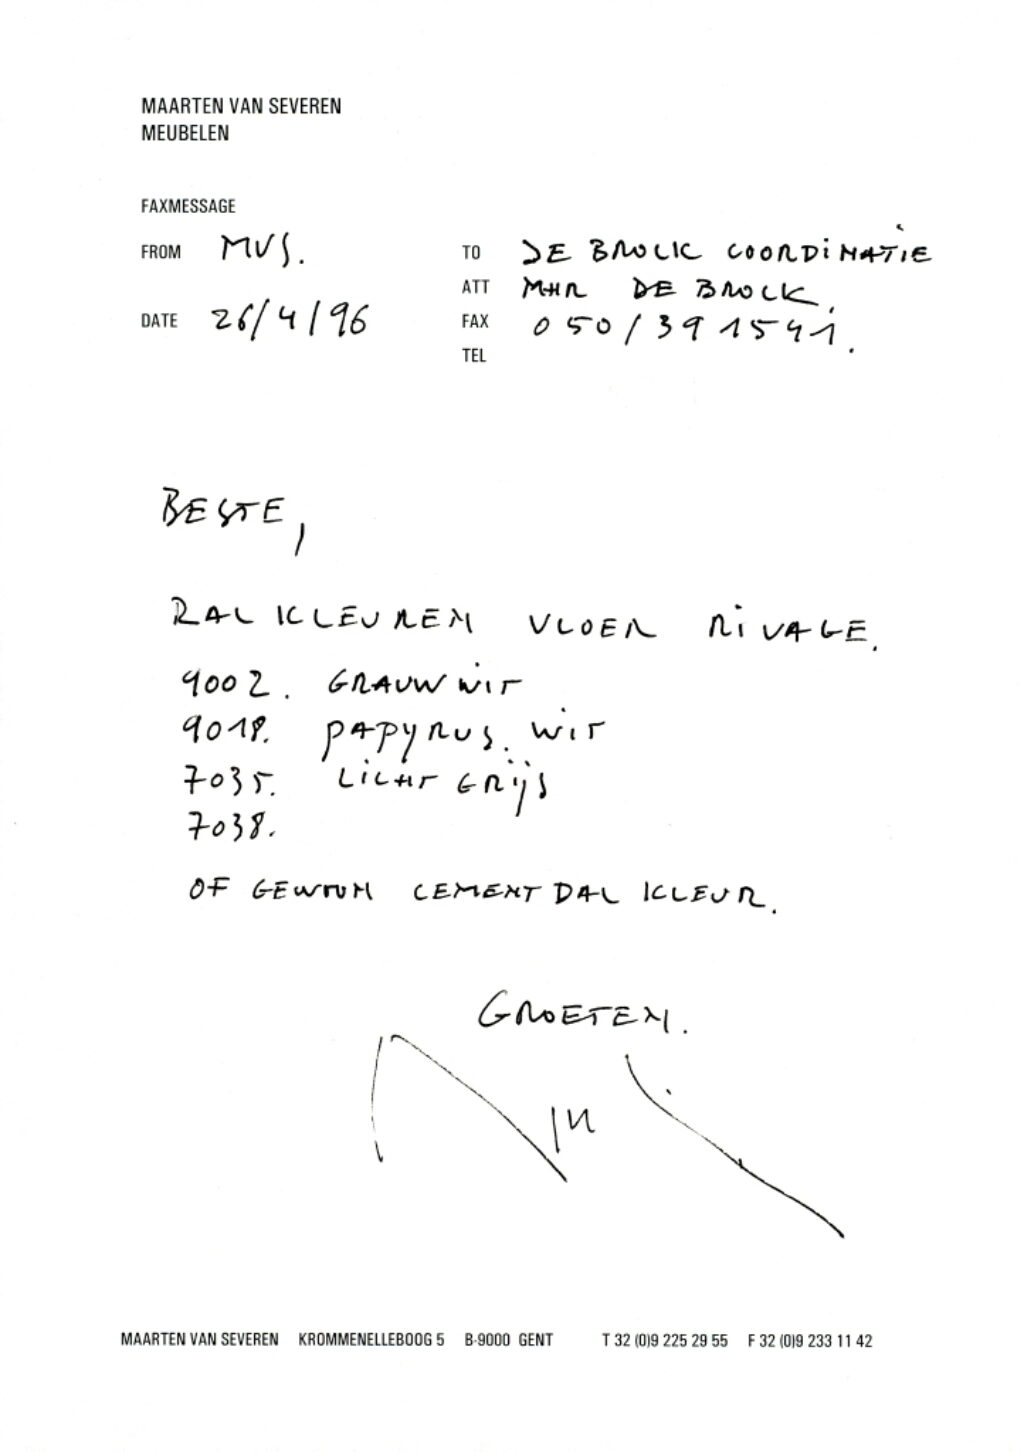 MAARTEN VAN SEVEREN
MEUBELEN
FAXMESSAGE
FROM MVS.
DATE 26/4/96
TO DE BROCK COORDINATIE
ATT MHR DE BROCK.
FAX 050/391541.
TEL
BESTE,
RAL KLEUREN VLOER RIVAGE.
9002. GRAUWWIT
9018. PAPYRUS. WIT
7035. LICHT GRIJS
7038.
OF GEWOON CEMENT DAL KLEUR.
GROETEN.
MAARTEN VAN SEVEREN KROMMENELLEBOOG 5 B-9000 GENT T 32 (0)9 225 29 55 F 32 (0)9 233 11 42